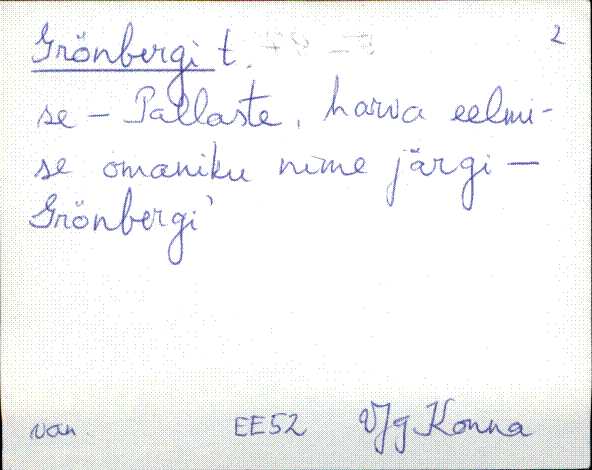 2
Grönbergi t.
se – Pallaste, harva eelmi-
se omaniku nime järgi –
Grönbergi'
van EE52 VJg Konna